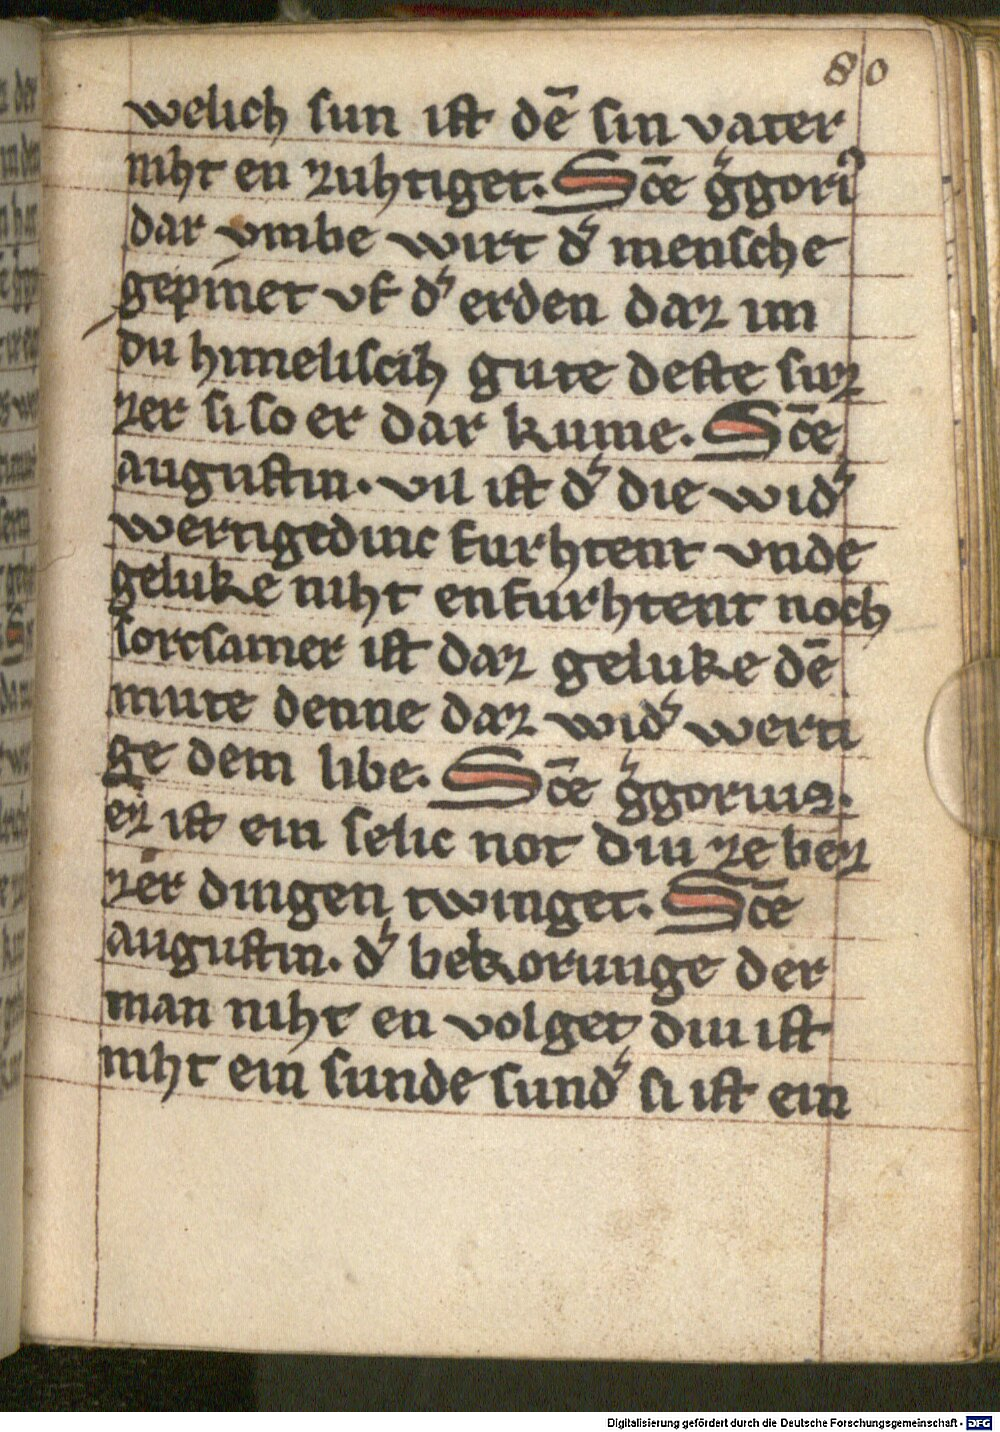 80
welich sun ist dē sin vater
niht en zuhtiget. Sc̄e g̊gori⁹
dar vmbe wirt d͛ mensche
gepinet vf d͛ erden daz im
du himelischh gute deste suz
zer si so er dar kume. Sc̄e
augustin. vil ist d͛ die wid͛
wertigedinc furhtent vnde
geluke niht enfurhtent noch
sorcsamer ist daz geluke dē
mute denne daz wid͛ werti
ge dem libe. Sc̄e g̊gorius.
ez ist ein selic not diu ze bez
zer dingen twinget. Sc̄e
augustin. d͛ bekorunge der
man niht en volget diu ist
niht ein sunde sund͛ si ist ein
Digitalisierung gefördert durch die Deutsche Forschungsgemeinschaft - DFG